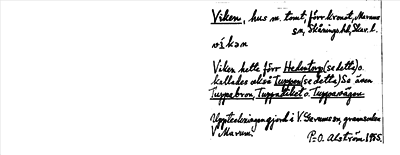 Viken, hus m. tomt, förr kronot, Marums
sn, Skånings hd, Skar. l.
vi̇̄kən
Viken hette förr Hedentorp (se detta) o.
kallades också Tuppen (se detta) Se även
Tuppabron, Tuppadiket o. Tuppavägen
Uppteckningen gjord i V. Gerums sn, grannsocken
V Marum.
P-O. Alström 1955.